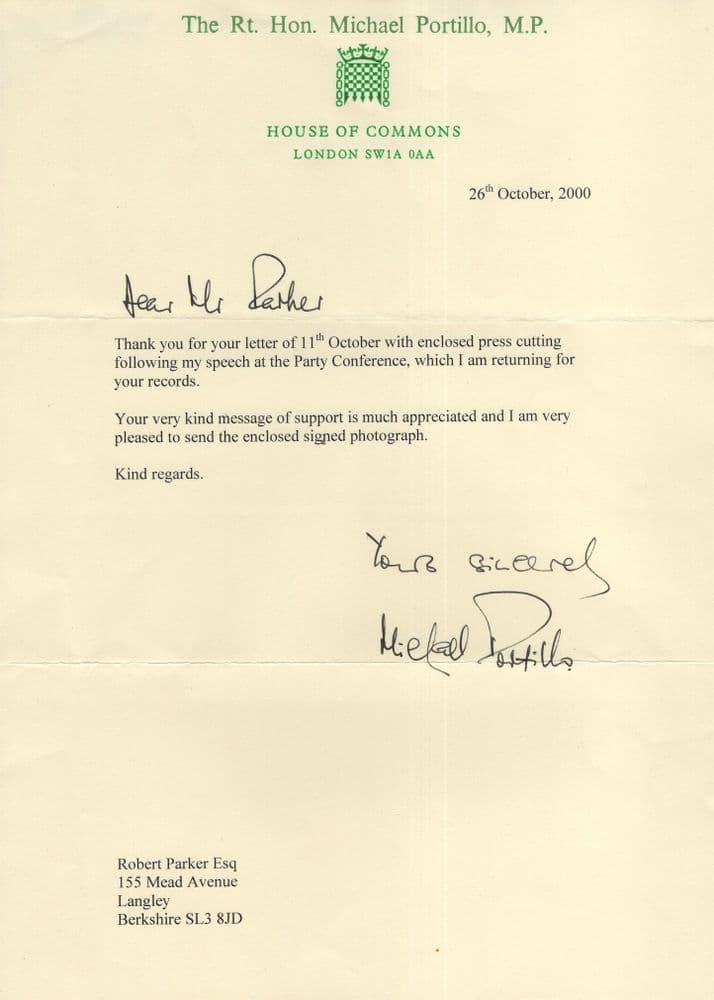 The Rt. Hon. Michael Portillo, M.P.
HOUSE OF COMMONS
LONDON SW1A 0AA
26th October, 2000
Dear Mr Parker
Thank you for your letter of 11th October with enclosed press cutting
following my speech at the Party Conference, which I am returning for
your records.
Your very kind message of support is much appreciated and I am very
pleased to send the enclosed signed photograph.
Kind regards.
Yours sincerely
Michael Portillo
Robert Parker Esq
155 Mead Avenue
Langley
Berkshire SL3 8JD